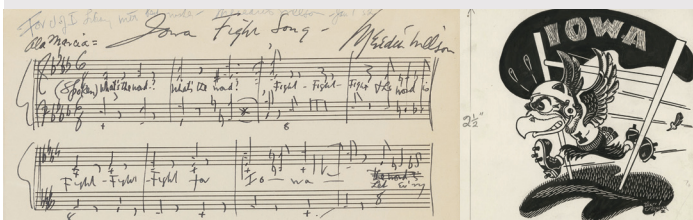 Alla Marcia = Iowa Fight Song - Meredith Willson
(Spoken) What's the word? What's the word? Fight - Fight - Fight the word is
Fight - Fight - Fight for Io - wa -
IOWA
2 1/2"